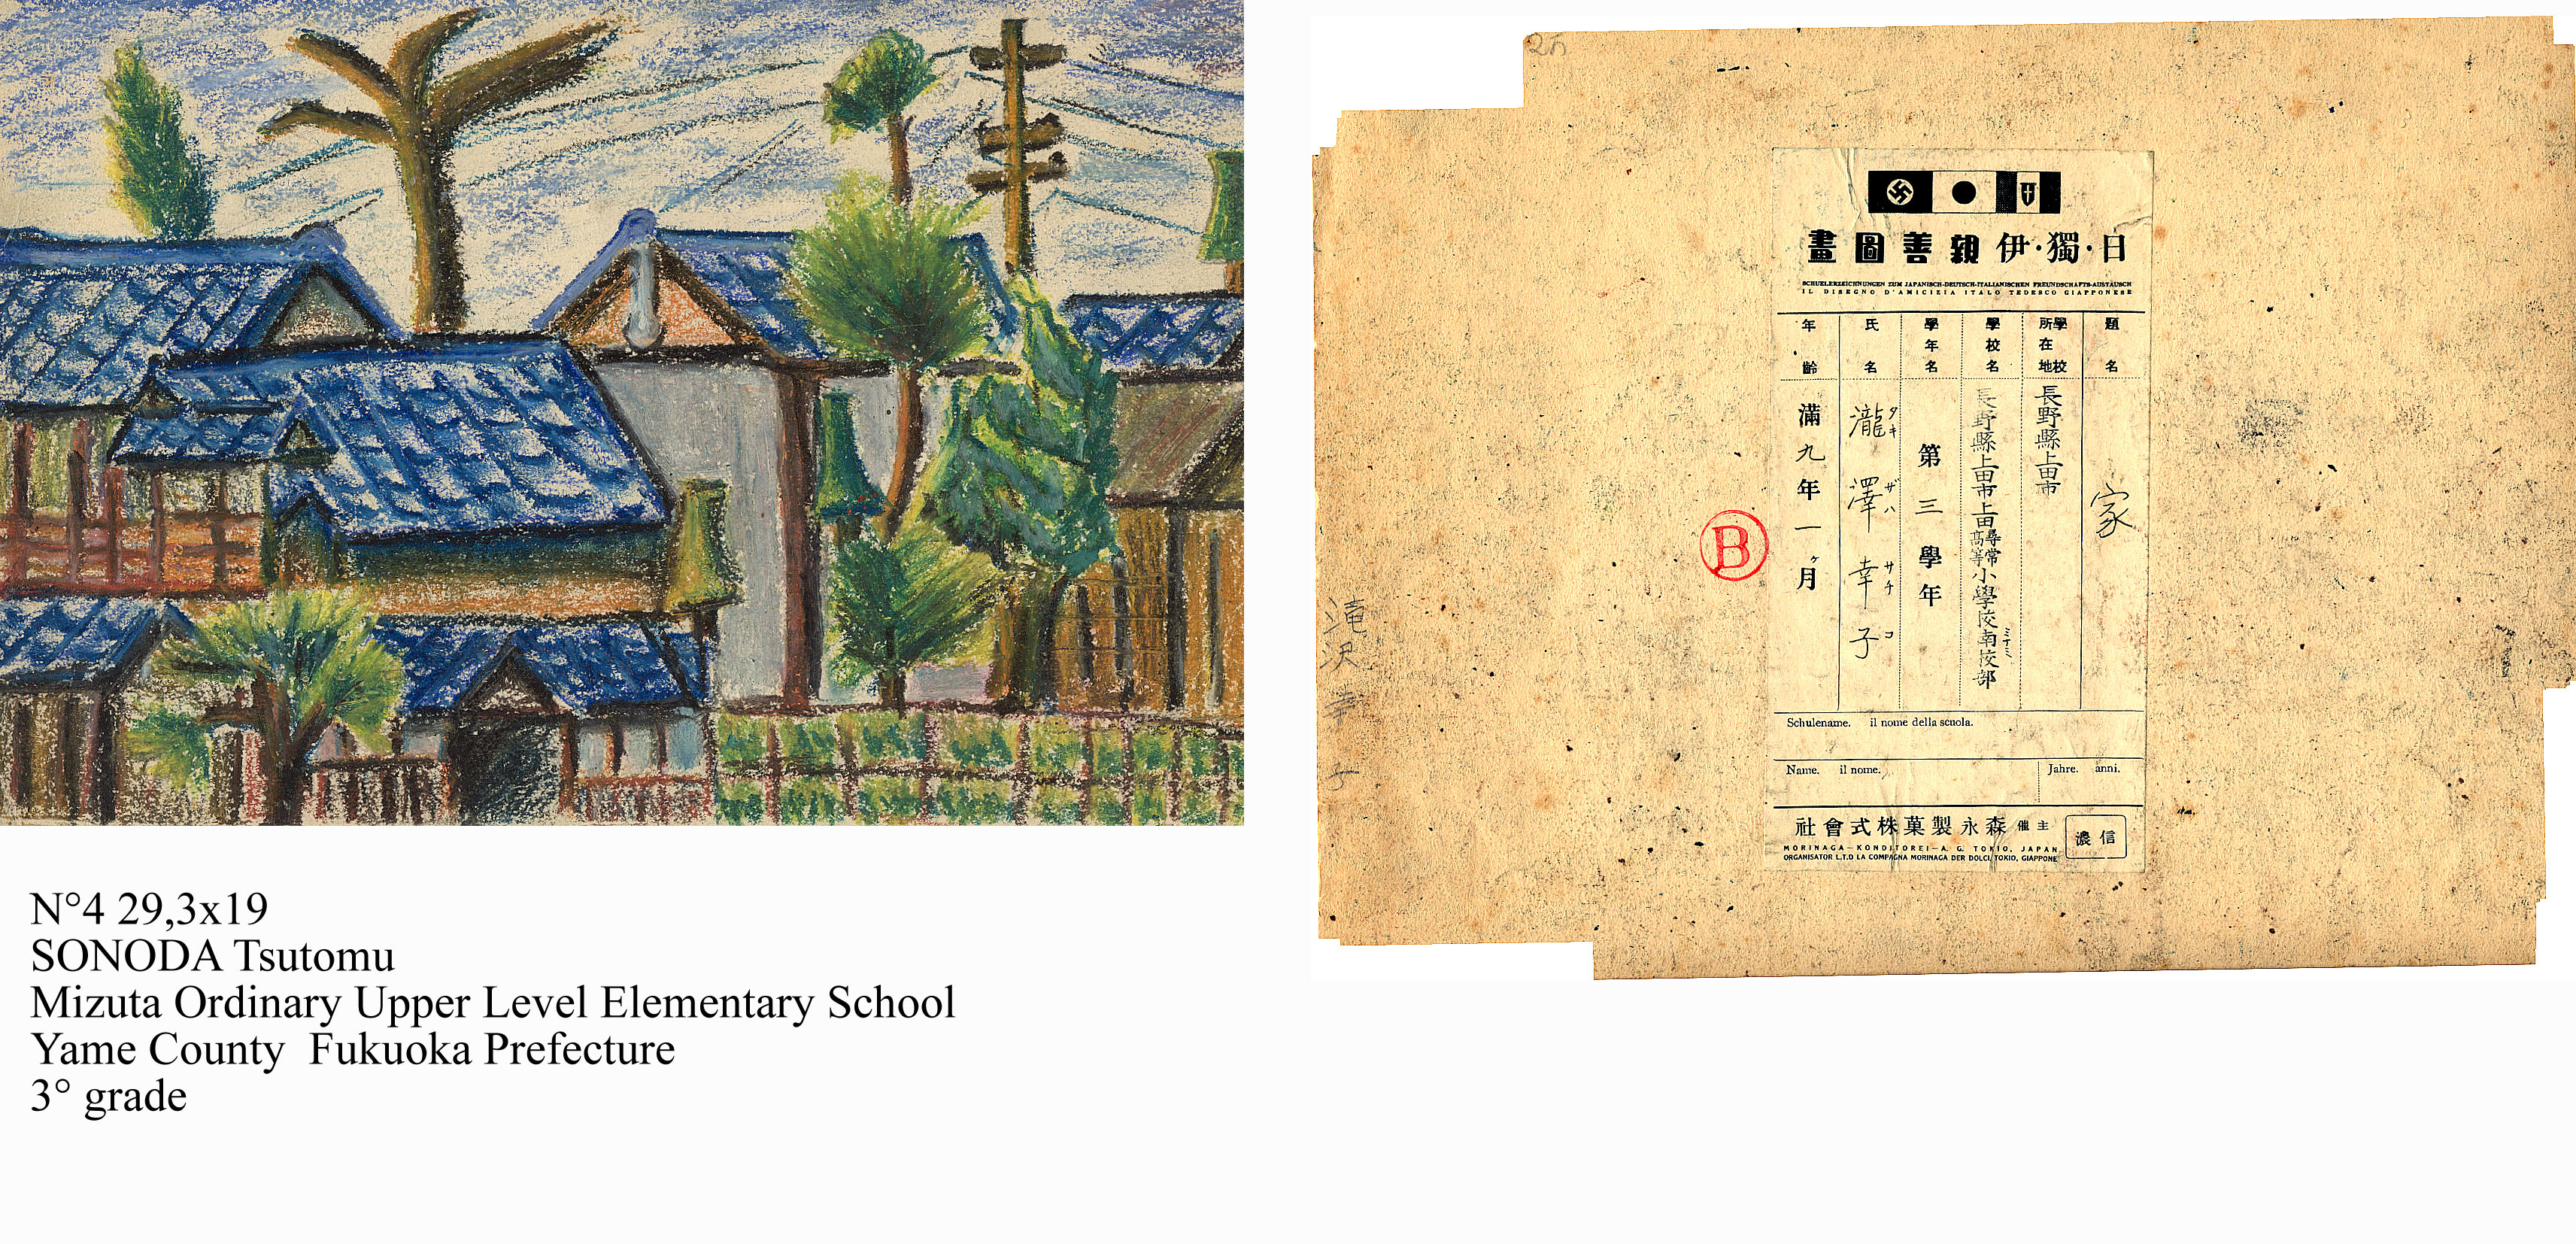 N°4 29,3x19
SONODA Tsutomu
Mizuta Ordinary Upper Level Elementary School
Yame County Fukuoka Prefecture
3° grade
日・獨・伊親善圖畫
SCHUELERZEICHNUNGEN ZUM JAPANISCH-DEUTSCH-ITALIANISCHEN FREUNDSCHAFTS-AUSTAUSCH
IL DISEGNO D'AMICIZIA ITALO TEDESCO GIAPPONESE
題名
家
學校所在地
長野縣上田市
學校名
長野縣上田市上田尋常高等小學校南校部
ミナミ
學年名
第三學年
氏名
瀧澤幸子
タキザハサチコ
年齡
滿九年一ヶ月
B
滝沢幸子
Schulename. il nome della scuola.
Name. il nome. Jahre. anni.
主催 森永製菓株式會社
信濃
MORINAGA-KONDITOREI-A. G. TOKIO, JAPAN
ORGANISATOR L.T.D LA COMPAGNA MORINAGA DER DOLCI, TOKIO, GIAPPONE